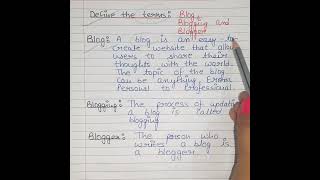 Define the terms: Blog,
Blogging and
Blogger
Blog: A blog is an easy to
create website that allows
users to share their
thoughts with the world.
The topic of the blog
can be anything from
Personal to Professional.
Blogging: The process of updating
a blog is called
blogging.
Blogger: The person who
writes a blog is
a blogger.